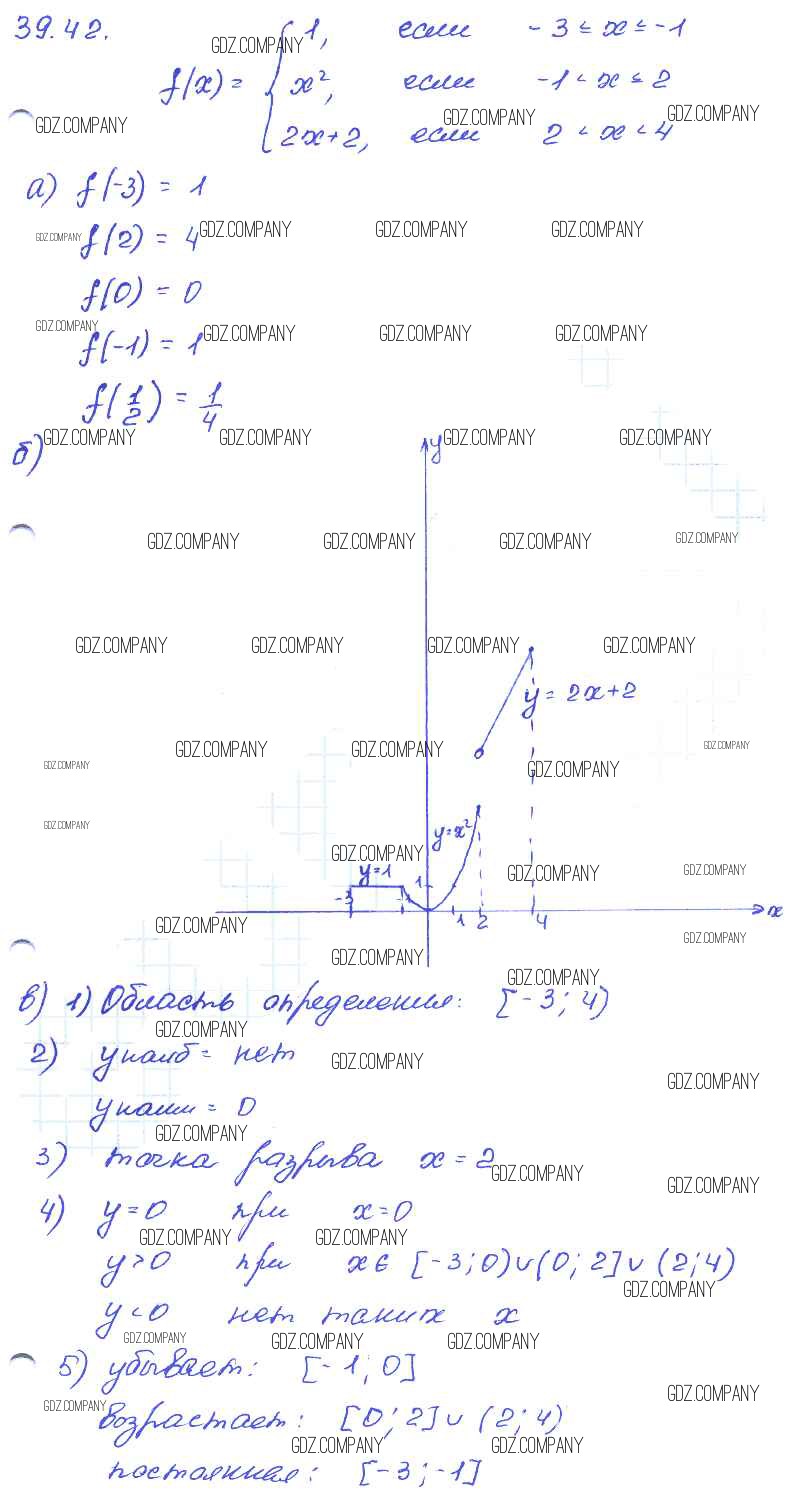 39.42.
f(x) = { 1, если -3 ≤ x ≤ -1
x², если -1 < x ≤ 2
2x+2, если 2 < x < 4
а) f(-3) = 1
f(2) = 4
f(0) = 0
f(-1) = 1
f(1/2) = 1/4
б)
y
y = 2x+2
y=x²
y=1
1
-3 -1 1 2 4 x
в) 1) Область определения: [-3; 4)
2) yнаиб = нет
yнаим = 0
3) точка разрыва x = 2
4) y=0 при x=0
y>0 при x∈ [-3;0)∪(0;2]∪(2;4)
y<0 нет таких x
5) убывает: [-1;0]
возрастает: [0;2]∪(2;4)
постоянная: [-3;-1]
GDZ.COMPANY